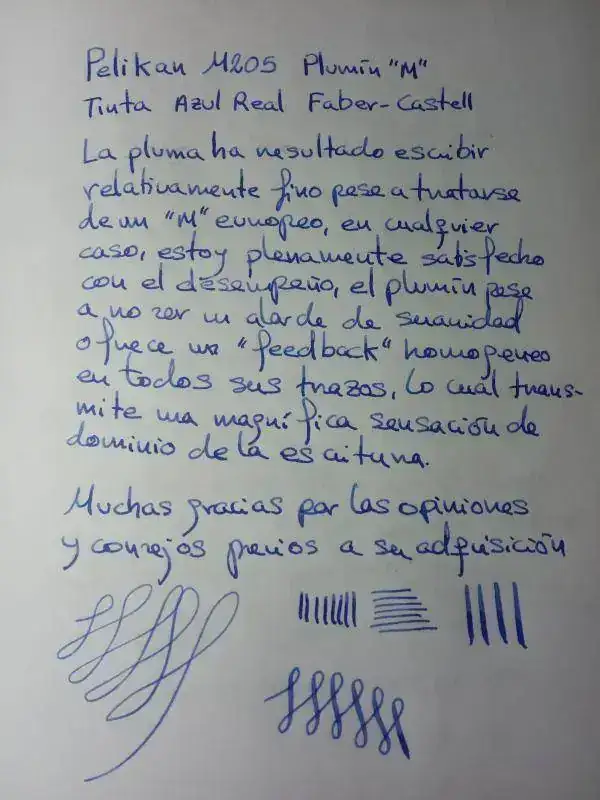 Pelikan M205 Plumín "M"
Tinta Azul Real Faber-Castell
La pluma ha resultado escribir
relativamente fino pese a tratarse
de un "M" europeo, en cualquier
caso, estoy plenamente satisfecho
con el desempeño, el plumín pese
a no ser un alarde de suavidad
ofrece un "feedback" homogeneo
en todos sus trazos, lo cual trans-
mite una magnífica sensación de
dominio de la escritura.
Muchas gracias por las opiniones
y consejos previos a su adquisición